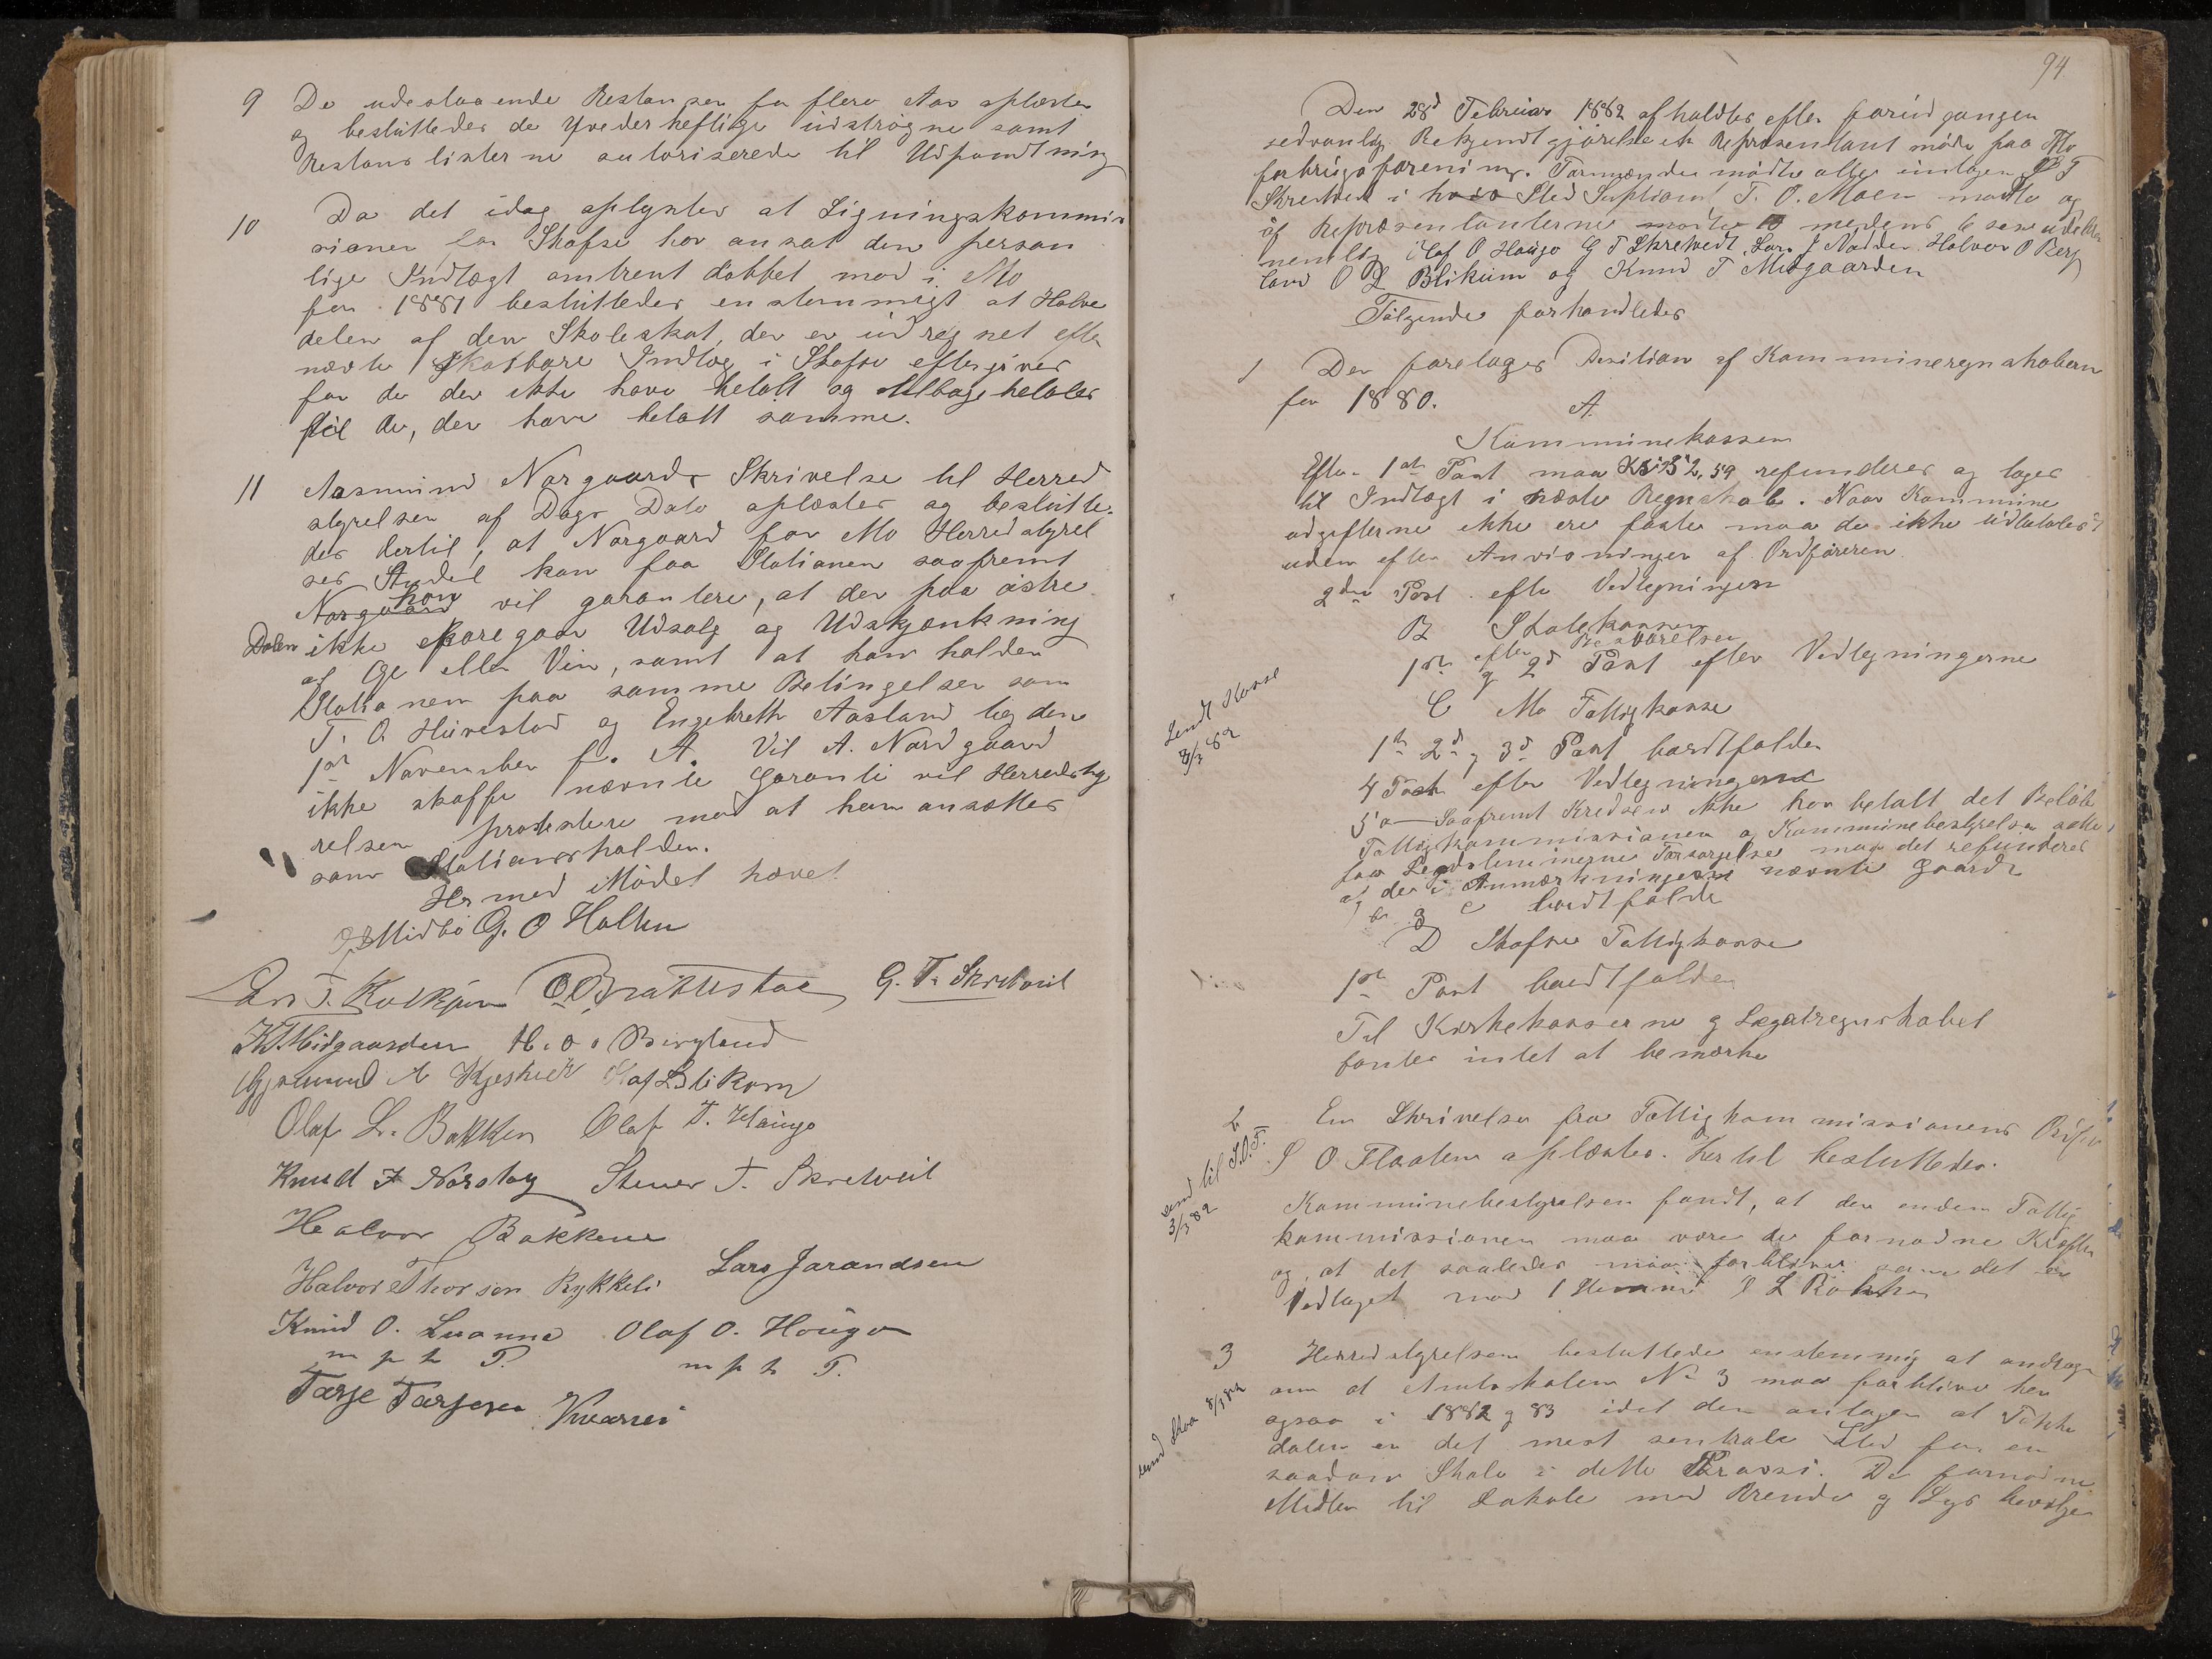 9 De udestaaende Restanser for flere Aar oplæstes
og besluttedes de Uvederheftige udstrøgne samt
Restanslisterne autoriserede til Udpandtning
10 Da det idag oplystes at Ligningskommis
sionen for Skafse har ansat den person
lige Indtægt omtrent dobbet mod i Mo
for 1881 besluttedes enstemmigt at Halve
delen af den Skoleskat, der er udregnet efter
nævnte skatbare Indtæg i Skafse eftergives
for de der ikke have betalt og tilbagebetales
til de, der have betalt samme.
11 Aasmund Norgaards Skrivelse til Herred
styrelsen af Dags Dato oplæstes og beslutte-
des dertil, at Norgaard for Mo Herredstyrel
ses Andel kan faa Stationen saafremt
Norgaard han vil garantere, at der paa østre
Dalen ikke foregaar Udsalg og Udskjænkning
af Øl eller Vin, samt at han holder
Stationen paa samme Betingelser som
T. O. Huvestad og Engebreth Aasland bøden
1ste November f. A. Vil A. Nordgaard
ikke skaffe nævnte Garanti vil Herredsty
relsen protestere mod at han ansættes
som Stationsholder.
Hermed Mødet hævet
Midbö G. O Holten
Lars T. Kvikjern O. Brattestaa G. T. Skretveit
K T Midgaarden H. O. Bergland
Gjermund A Kjeskeid Olaf L Blikom
Olaf L. Bakken Olaf T. Haugo
Knud J Norstog Stener T. Skretveit
Halvor Bakkene
Halvor Thorsen Rykkeli Lars Jarandsen
Knud O. Luanna Olaf O. Haugo
m p h P. m p h P.
Tarje Tarjesen Kvarnei
94
Den 28d Februar 1882 afholdtes efter forudgangen
sedvanlig Bekjendtgjørelse et Representantmøde paa Mo
forbrugsforening. Formænden mødte alle undtagen G T
Skretveit i hvis Sted Supliant T. O. Moen mødte og
af Repræsentanterne mødte 10 medens 6 vare udeblevne
nemlig Olaf O Haugo G T Skretvedt, Lars J Nadden Halvor O Berg
land O L Blikum og Knud T Midgaarden
Følgende forhandledes
1 Der foretages Desition af Kommuneregnskaberne
for 1880.
A.
Kommunekassen
Efter 1ste Post maa Kr 52,59 refunderes og tages
til Indtægt i næste Regnskab. Naar Kommune
udgifterne ikke ere faste maa de ikke udbetales
uden efter Anvisninger af Ordføreren
2den Post efter Vedtegningen
B Skolekassen
1ste efter Besvarelsen
og 2d Post efter Vedtegningerne
C Mo Fattigkasse
1ste 2d og 3d Post bortfalder
4 Post efter Vedtegningerne
5 a Saafremt Kredsen ikke har betalt det Beløb
Fattigkommissionen og Kommunebestyrelsen satte
for Legdslemmernes Forsørgelse maa det refunderes
af de i Anmærkningerne nævnte Gaarde
b og c bortfalder
D Skafse Fattigkasse
1ste Post bortfalder
Til Kirkekasserne og Legatregnskabet
fantes intet at bemærke
Sendt Kasse
8/3 82
2 En Skrivelse fra Fattigkommissionens Ordfører
S O Flaaten oplæstes. Hertil besluttedes.
send til S.O.F.
3/3 82
Kommunebestyrelsen fandt, at der enden Fattig
kommissionen maa være de fornødne Kræfter
og, at det saaledes maa forblive som det er
Vedtaget mod 1 Stemme O L Bakken
3 Herredstyrelsen besluttede enstemmig at andrage
om at Amtsskolen No 3 maa forblive her
ogsaa i 1882 og 83 idet den antager at Tokke
dalen er det mest sentrale Sted for en
saadan Skole i dette Provsti. De fornødne
Midler til Lokale med Brende og Lys bevilges